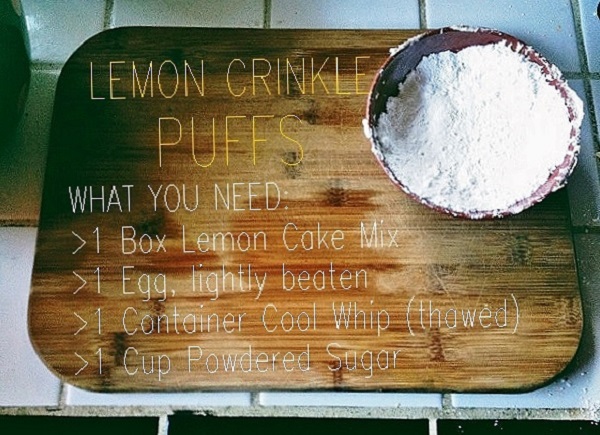 LEMON CRINKLE
PUFFS
WHAT YOU NEED:
>1 Box Lemon Cake Mix
>1 Egg, lightly beaten
>1 Container Cool Whip (thawed)
>1 Cup Powdered Sugar